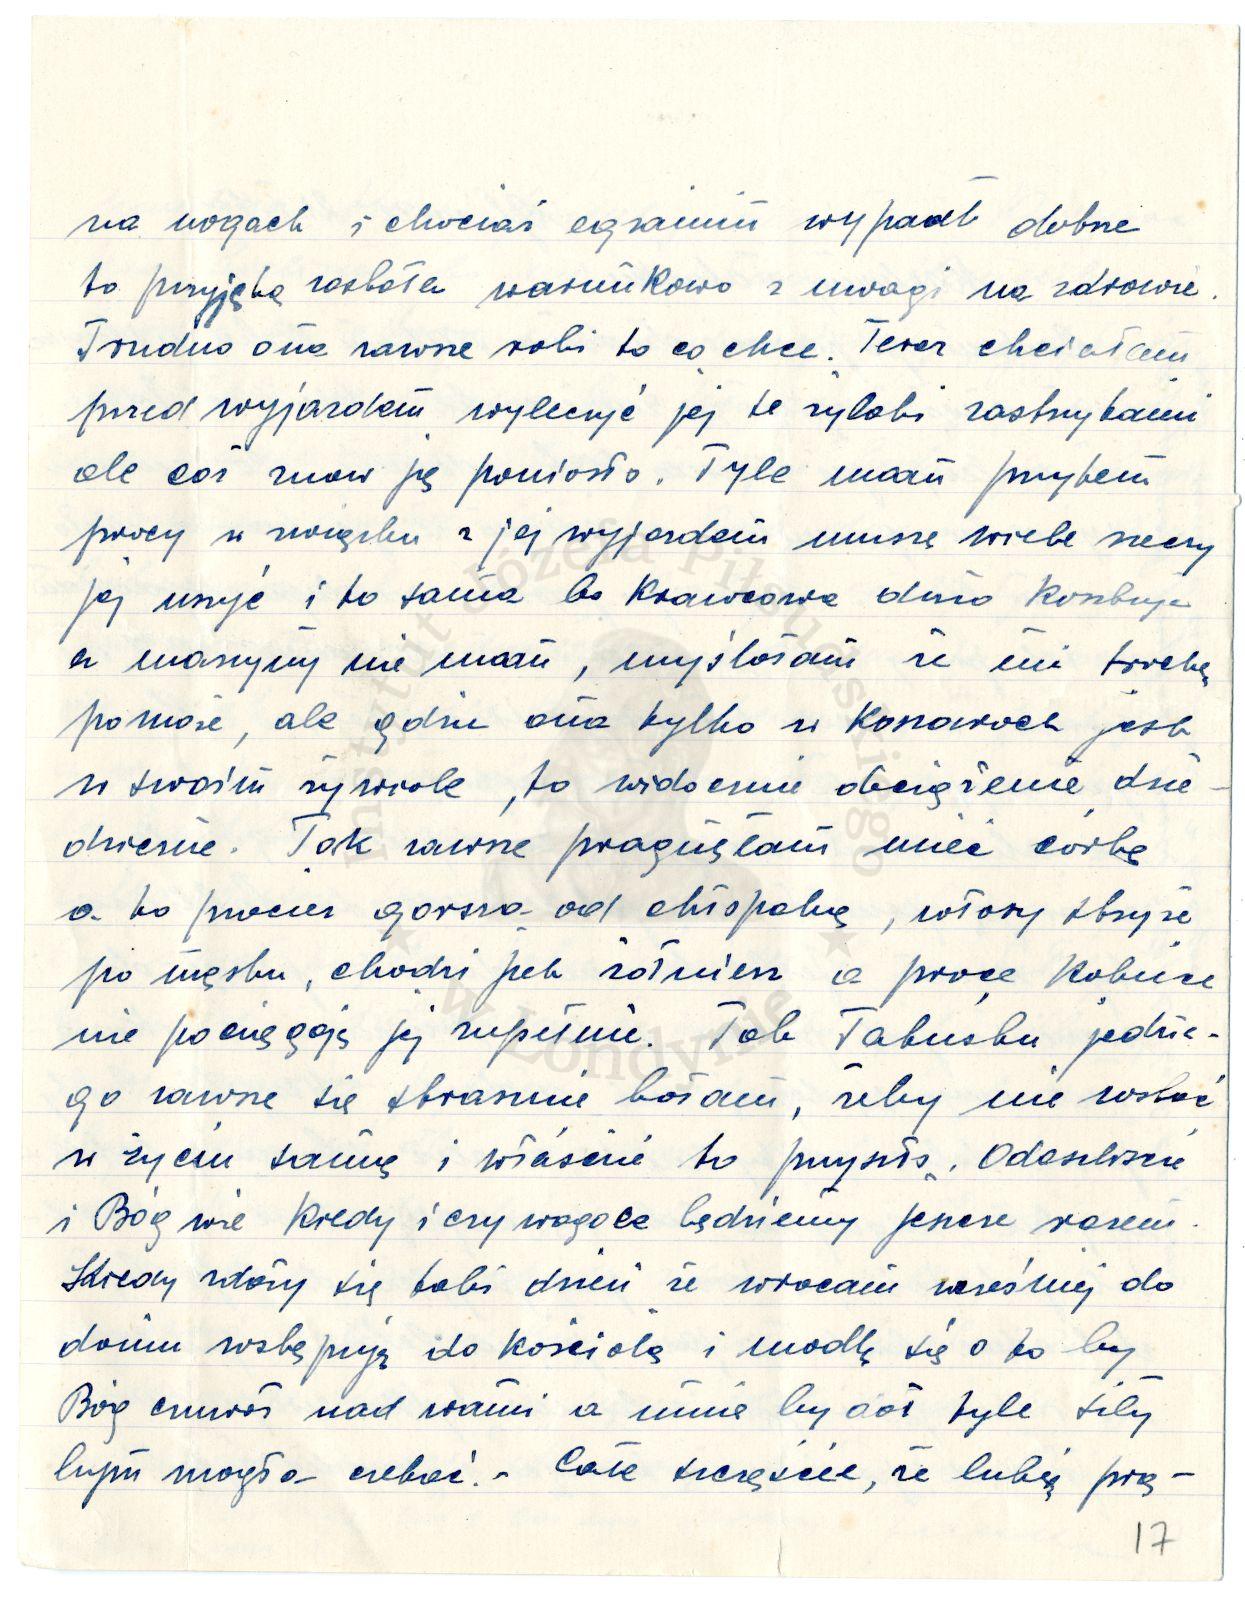 na nogach i chociaż egzamin wypadł dobrze
to przyjętą została warunkowo z uwagi na zdrowie.
Trudno ona zawsze robi to co chce. Teraz chciałam
przed wyjazdem wyleczyć jej te żylaki zastrzykami
ale coś znow ją poniosło. Tyle mam przytem
pracy w związku z jej wyjazdem muszę wiele rzeczy
jej uszyć i to sama bo krawcowa dużo kosztuje
a maszyny nie mam, myślałam że mi trochę
pomoże, ale gdzie ona tylko w koszarach jest
w swoim żywiole, to widocznie obciążenie dzie-
dziczne. Tak zawsze pragnęłam mieć córkę
a to przecież gorsza od chłopaka, włosy strzyże
po męsku, chodzi jak żołnierz a prace kobiece
nie pociągają jej zupełnie. Tak Tatusku jedne-
go zawsze się strasznie bałam, żeby nie zostać
w życiu samą i właśnie to przyszło. Odeszliście
i Bóg wie kiedy i czy wogóle będziemy jeszcze razem.
Kiedy zdarzy się taki dzień że wracam wcześniej do
domu wstępuję do kościoła i modlę się o to by
Bóg czuwał nad wami a mnie by dał tyle siły
bym mogła czekać. - Całe szczęście, że lubię pra-
17
Instytut Józefa Piłsudskiego
w Londynie